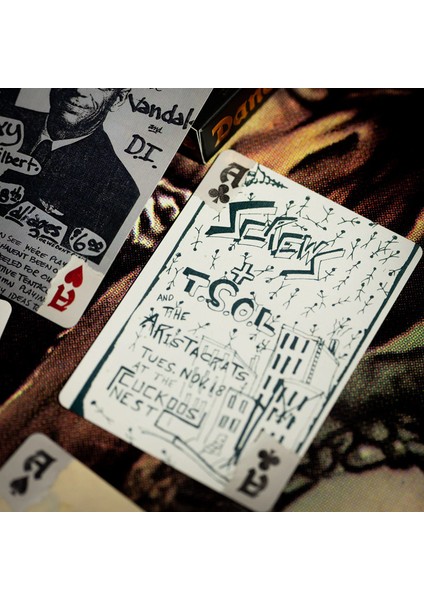 Vandal
and
D.I.
ilbert.
8th
all ages
$6.00
N SEE WE'RE PLAY
HAVENT BEEN
ELED FOR
TIVE TENTAC
WN PLAYIN
IDEAS
A
Dan
A
SCREWS
+
T.S.O.L
AND THE
ARISTACRATS
TUES. NOV. 18
AT THE
CUCKOOS
NEST
A
A